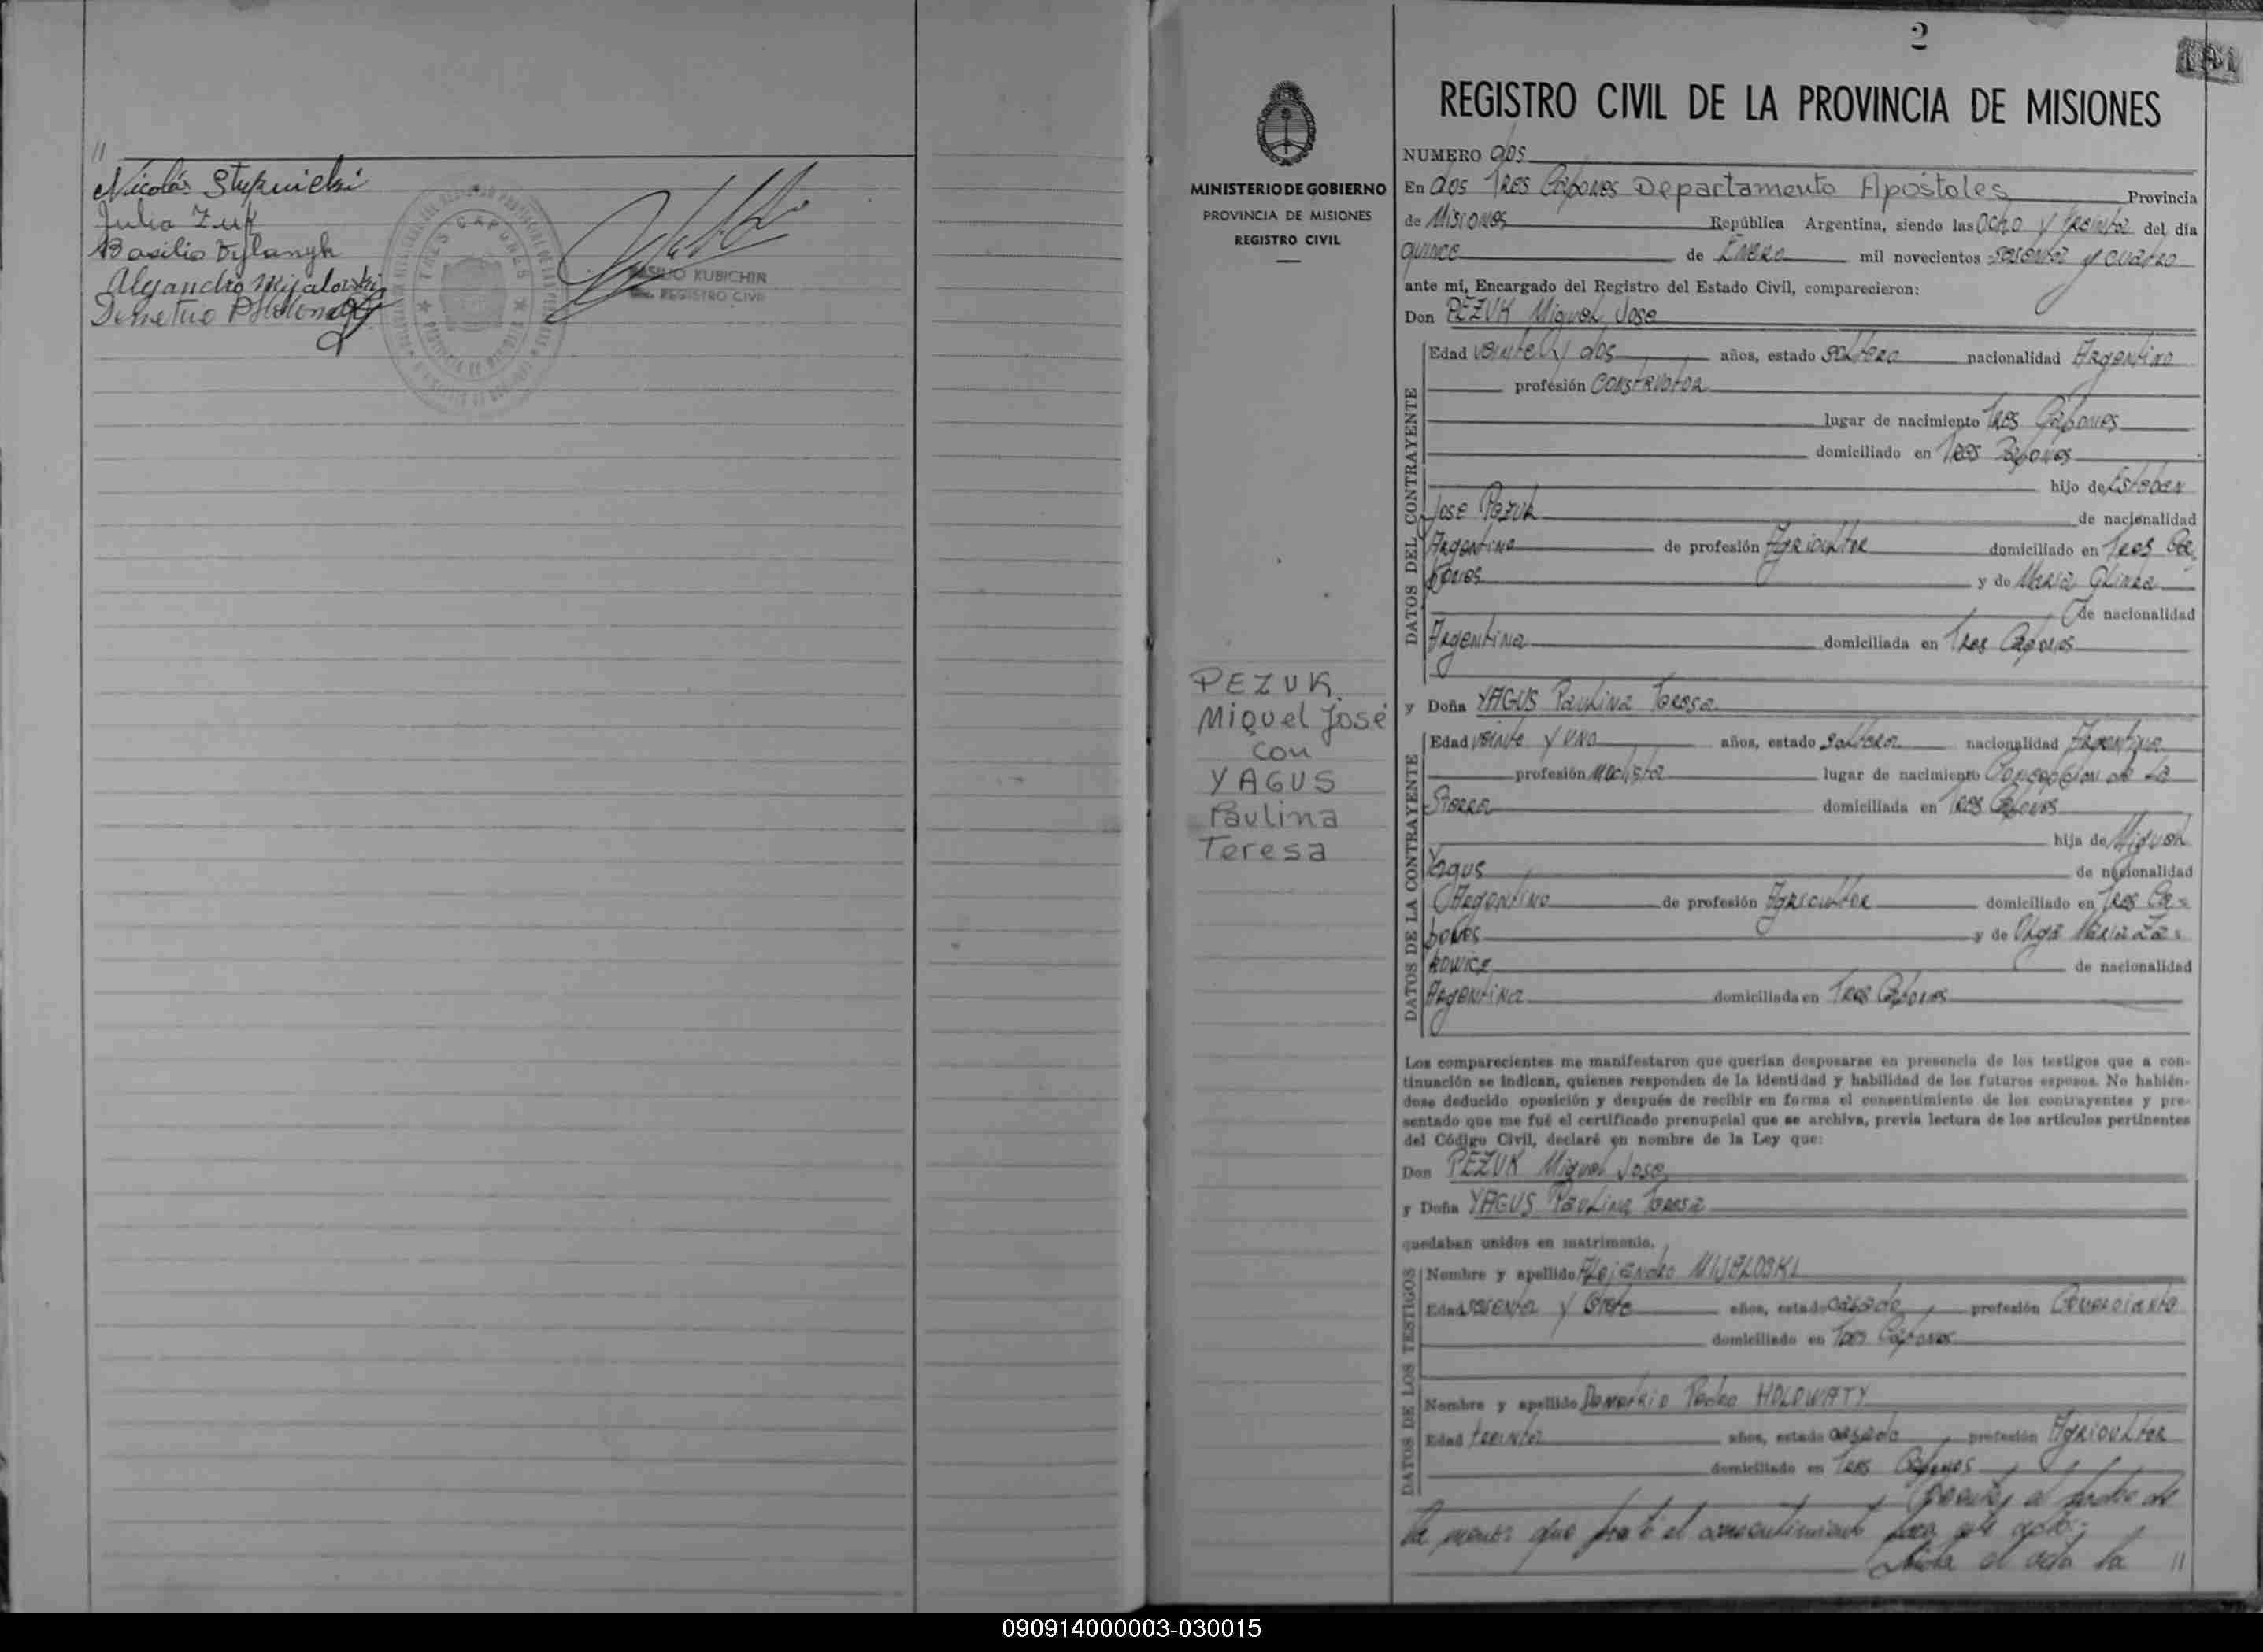 //
Nicolás Stupnicki
Julia Zuk
Basilio
Alejandro Mijalovski
Demetrio
TRES CAPONES
BASILIO KUBICHIN
REGISTRO CIVIL
2
REGISTRO CIVIL DE LA PROVINCIA DE MISIONES
MINISTERIO DE GOBIERNO
PROVINCIA DE MISIONES
REGISTRO CIVIL
PEZUK
Miguel José
con
YAGUS
Paulina
Teresa
NUMERO dos
En dos Tres Capones Departamento Apóstoles Provincia
de Misiones República Argentina, siendo las Ocho y treinta del día
quince de Enero mil novecientos sesenta y cuatro
ante mí, Encargado del Registro del Estado Civil, comparecieron:
Don PEZUK Miguel Jose
DATOS DEL CONTRAYENTE
Edad veinte y dos años, estado soltero nacionalidad Argentino
profesión Constructor
lugar de nacimiento Tres Capones
domiciliado en Tres Capones
hijo de Esteban
Jose Pezuk de nacionalidad
Argentino de profesión Agricultor domiciliado en Tres Ca=
pones y de Maria Glinka
de nacionalidad
Argentina domiciliada en Tres Capones
y Doña YAGUS Paulina Teresa
DATOS DE LA CONTRAYENTE
Edad veinte y uno años, estado soltera nacionalidad Argentina
profesión Modista lugar de nacimiento Concepcion de la
Sierra domiciliada en Tres Capones
hija de Miguel
Yagus de nacionalidad
Argentino de profesión Agricultor domiciliado en Tres Ca=
pones y de Olga Maria Za=
kowicz de nacionalidad
Argentina domiciliada en Tres Capones
Los comparecientes me manifestaron que querían desposarse en presencia de los testigos que a con-
tinuación se indican, quienes responden de la identidad y habilidad de los futuros esposos. No habién-
dose deducido oposición y después de recibir en forma el consentimiento de los contrayentes y pre-
sentado que me fué el certificado prenupcial que se archiva, previa lectura de los artículos pertinentes
del Código Civil, declaré en nombre de la Ley que:
Don PEZUK Miguel Jose
y Doña YAGUS Paulina Teresa
quedaban unidos en matrimonio.
DATOS DE LOS TESTIGOS
Nombre y apellido Alejandro MIJALOSKI
Edad sesenta y siete años, estado casado, profesión Comerciante
domiciliado en Tres Capones
Nombre y apellido Demetrio Pedro HOLOWATY
Edad treinta años, estado casado, profesión Agricultor
domiciliado en Tres Capones
Presente el padre de
la menor que prestó el consentimiento para este acto:
Leida el acta la //
090914000003-030015